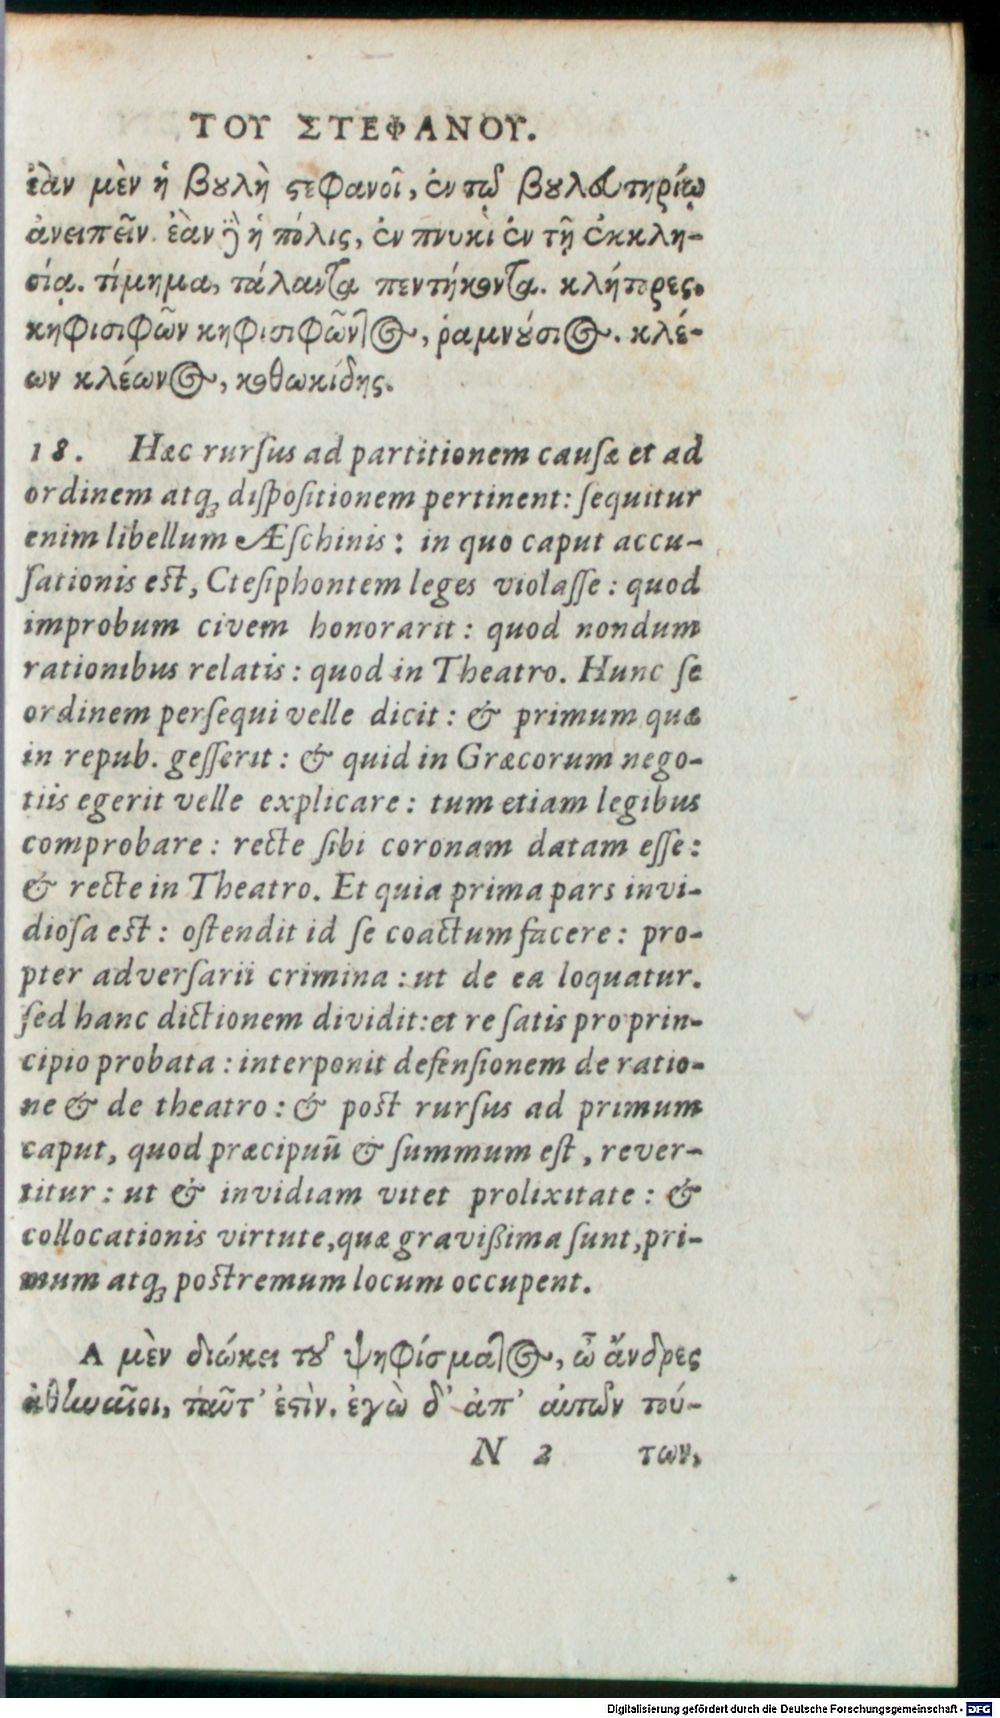 ΤΟΥ ΣΤΕΦΑΝΟΥ.
ἐὰν μὲν ἡ βουλὴ στεφανοῖ, ἐν τῷ βουλευτηρίῳ
ἀνειπεῖν. ἐὰν δὲ ἡ πόλις, ἐν πνυκὶ ἐν τῇ ἐκκλη-
σίᾳ. τίμημα, τάλαντα πεντήκοντα. κλήτορες.
κηφισιφῶν κηφισιφῶντος, ῥαμνούσιος. κλέ-
ων κλέωνος, κοθωκίδης.
18. Hæc rurſus ad partitionem cauſæ et ad
ordinem atq; diſpoſitionem pertinent: ſequitur
enim libellum Æſchinis: in quo caput accu-
ſationis est, Cteſiphontem leges violaſſe: quod
improbum civem honorarit: quod nondum
rationibus relatis: quod in Theatro. Hunc ſe
ordinem perſequi velle dicit: & primum quæ
in repub. geſſerit: & quid in Græcorum nego-
tiis egerit velle explicare: tum etiam legibus
comprobare: recte ſibi coronam datam eſſe:
& recte in Theatro. Et quia prima pars invi-
dioſa est: oſtendit id ſe coactum facere: pro-
pter adverſarii crimina: ut de ea loquatur.
ſed hanc dictionem dividit: et re ſatis pro prin-
cipio probata: interponit defenſionem de ratio-
ne & de theatro: & post rurſus ad primum
caput, quod præcipuū & ſummum eſt, rever-
titur: ut & invidiam vitet prolixitate: &
collocationis virtute, quæ gravißima ſunt, pri-
mum atq; postremum locum occupent.
Α μὲν διώκει τοῦ ψηφίσματος, ὦ ἄνδρες
ἀθηναῖοι, ταῦτ' ἐστὶν. ἐγὼ δ' ἀπ' αὐτῶν τού-
N 2 των,
Digitalisierung gefördert durch die Deutsche Forschungsgemeinschaft - DFG